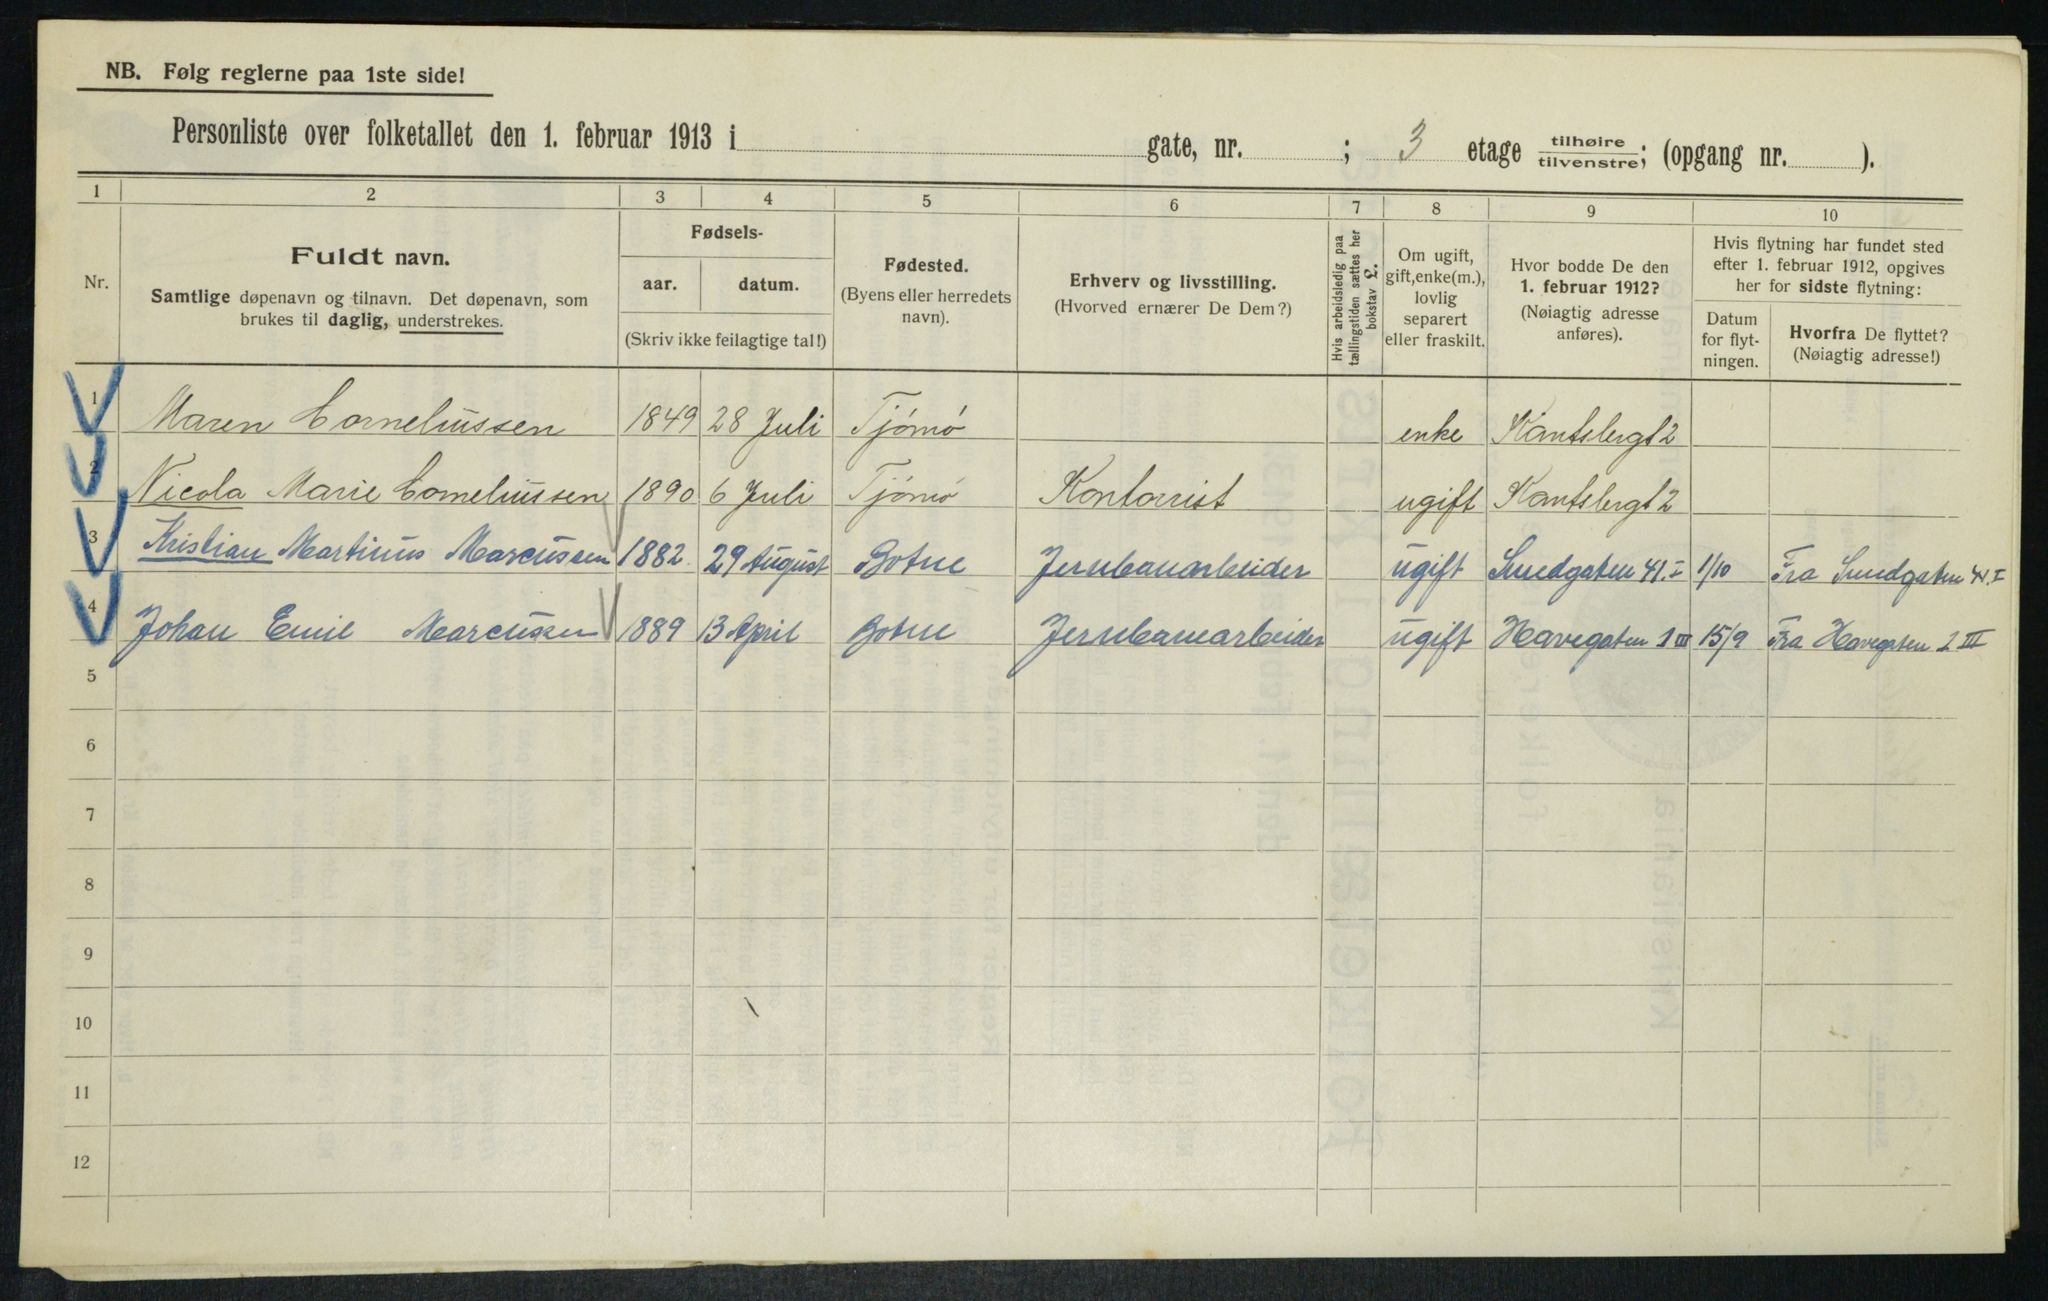 NB. Følg reglerne paa 1ste side!
Personliste over folketallet den 1. februar 1913 i gate, nr. ; 3 etage tilhøire tilvenstre; (opgang nr. ).
1 2 3 4 5 6 7 8 9 10
Nr.
Fuldt navn.
Samtlige døpenavn og tilnavn. Det døpenavn, som
brukes til daglig, understrekes.
Fødsels-
aar. datum.
(Skriv ikke feilagtige tal!)
Fødested.
(Byens eller herredets
navn).
Erhverv og livsstilling.
(Hvorved ernærer De Dem?)
Hvis arbeidsledig paa
tællingstiden sættes her
bokstav L.
Om ugift,
gift, enke(m.),
lovlig
separert
eller fraskilt.
Hvor bodde De den
1. februar 1912?
(Nøiagtig adresse
anføres).
Hvis flytning har fundet sted
efter 1. februar 1912, opgives
her for sidste flytning:
Datum
for flyt-
ningen.
Hvorfra De flyttet?
(Nøiagtig adresse!)
1 Maren Corneliussen 1849 28 Juli Tjømø enke Kantsbergt 2
2 Nicola Marie Corneliussen 1890 6 Juli Tjømø Kontorist ugift Kantsbergt 2
3 Kristian Martinus Marcussen 1882 29 August Botne Jernbanarbeider ugift Smedgaten 41. I 1/10 Fra Smedgaten 41. I
4 Johan Emil Marcussen 1889 13 April Botne Jernbanearbeider ugift Havegaten 1 III 15/9 Fra Havegaten 1 III
5
6
7
8
9
10
11
12